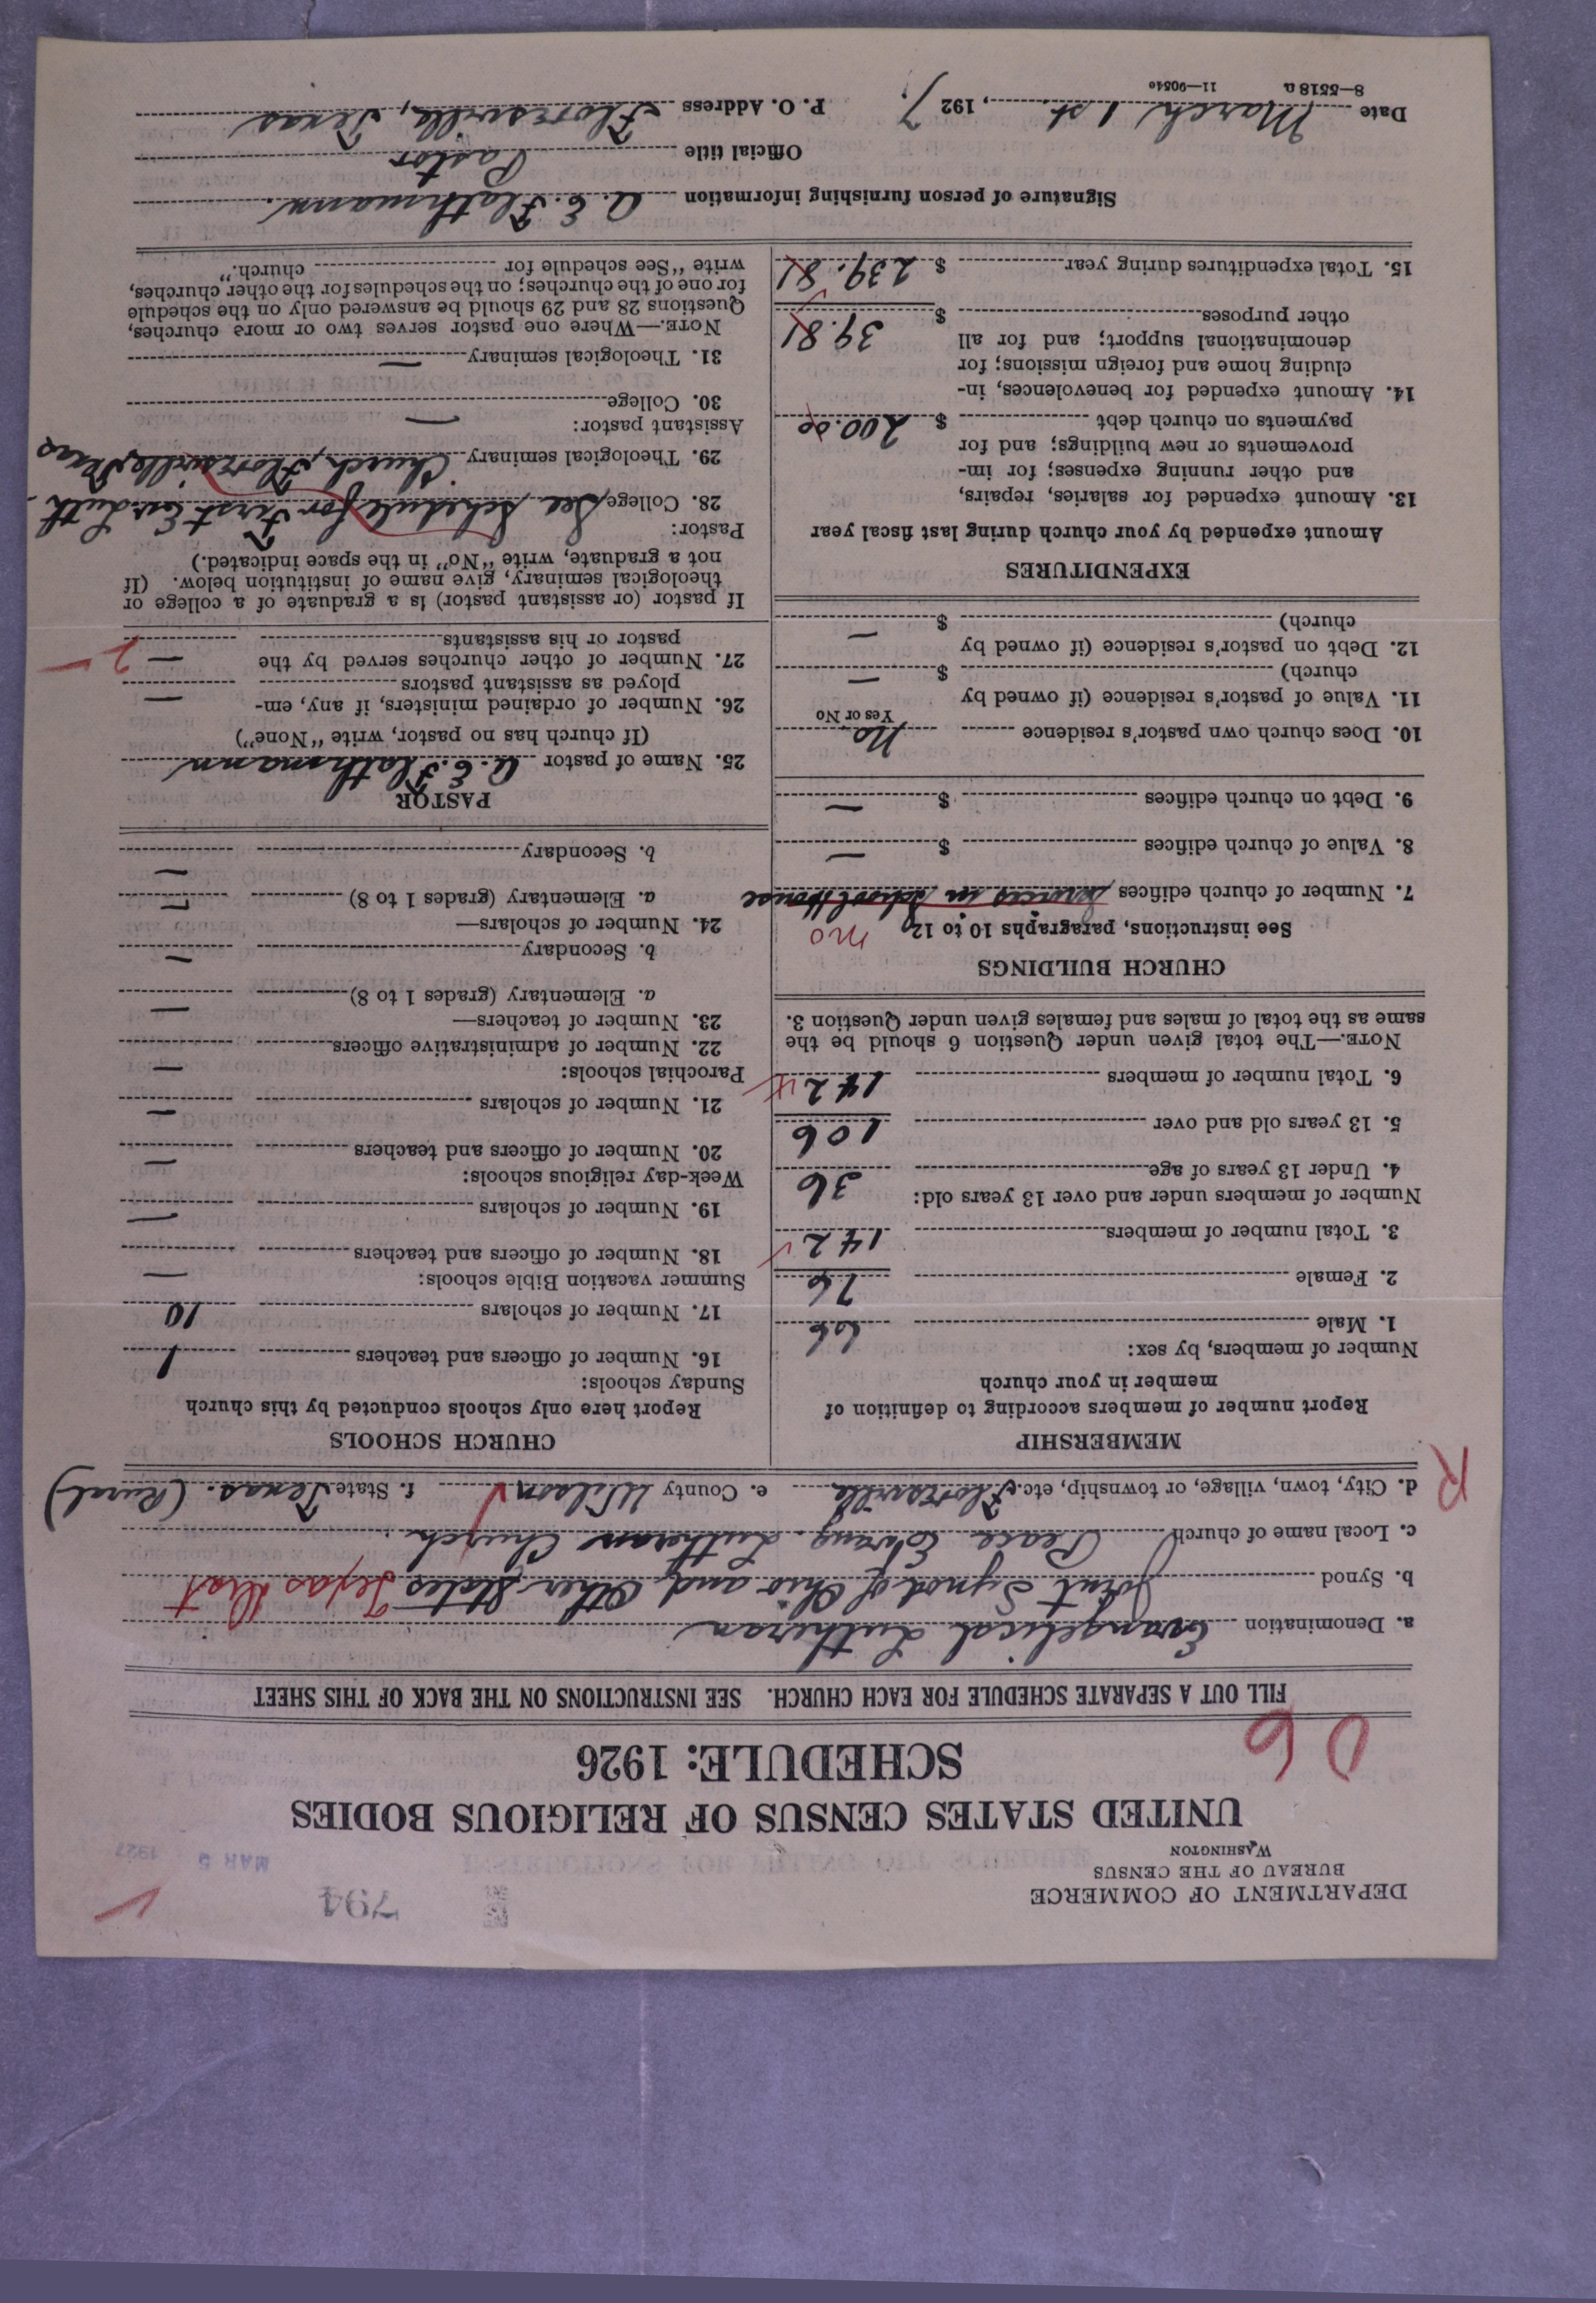 DEPARTMENT OF COMMERCE
BUREAU OF THE CENSUS
WASHINGTON
794
MAR 5 1927
UNITED STATES CENSUS OF RELIGIOUS BODIES
SCHEDULE: 1926
06
FILL OUT A SEPARATE SCHEDULE FOR EACH CHURCH. SEE INSTRUCTIONS ON THE BACK OF THIS SHEET
a. Denomination Evangelical Lutheran
b. Synod Joint Synod of Ohio and Other States Texas Dist
c. Local name of church Peace Evang. Lutheran Church
R
d. City, town, village, or township, etc. Floresville e. County Wilson f. State Texas. (Rural)
MEMBERSHIP
Report number of members according to definition of
member in your church
Number of members, by sex:
1. Male 66
2. Female 76
3. Total number of members 142
Number of members under and over 13 years old:
4. Under 13 years of age 36
5. 13 years old and over 106
6. Total number of members 142
NOTE.—The total given under Question 6 should be the
same as the total of males and females given under Question 3.
CHURCH BUILDINGS
See instructions, paragraphs 10 to 12 no
7. Number of church edifices services in School House
8. Value of church edifices $ —
9. Debt on church edifices $ —
10. Does church own pastor's residence No
Yes or No
11. Value of pastor's residence (if owned by
church) $ —
12. Debt on pastor's residence (if owned by
church) $ —
EXPENDITURES
Amount expended by your church during last fiscal year
13. Amount expended for salaries, repairs,
and other running expenses; for im-
provements or new buildings; and for
payments on church debt $ 200.00
14. Amount expended for benevolences, in-
cluding home and foreign missions; for
denominational support; and for all
other purposes $ 39.81
15. Total expenditures during year $ 239.81
CHURCH SCHOOLS
Report here only schools conducted by this church
Sunday schools:
16. Number of officers and teachers 1
17. Number of scholars 10
Summer vacation Bible schools:
18. Number of officers and teachers —
19. Number of scholars —
Week-day religious schools:
20. Number of officers and teachers —
21. Number of scholars —
Parochial schools:
22. Number of administrative officers —
23. Number of teachers—
a. Elementary (grades 1 to 8) —
b. Secondary —
24. Number of scholars—
a. Elementary (grades 1 to 8) —
b. Secondary —
PASTOR
25. Name of pastor A. E. Flathmann
(If church has no pastor, write "None")
26. Number of ordained ministers, if any, em-
ployed as assistant pastors —
27. Number of other churches served by the
pastor or his assistants — 2
If pastor (or assistant pastor) is a graduate of a college or
theological seminary, give name of institution below. (If
not a graduate, write "No" in the space indicated.)
Pastor:
28. College See Schedule for First Ev. Luth.
29. Theological seminary Church, Floresville, Texas
Assistant pastor:
30. College —
31. Theological seminary —
NOTE.—Where one pastor serves two or more churches,
Questions 28 and 29 should be answered only on the schedule
for one of the churches; on the schedules for the other churches,
write "See schedule for church."
Signature of person furnishing information A. E. Flathmann.
Official title Pastor
Date March 1st., 1927. P. O. Address Floresville, Texas
8—5518a 11—9054a